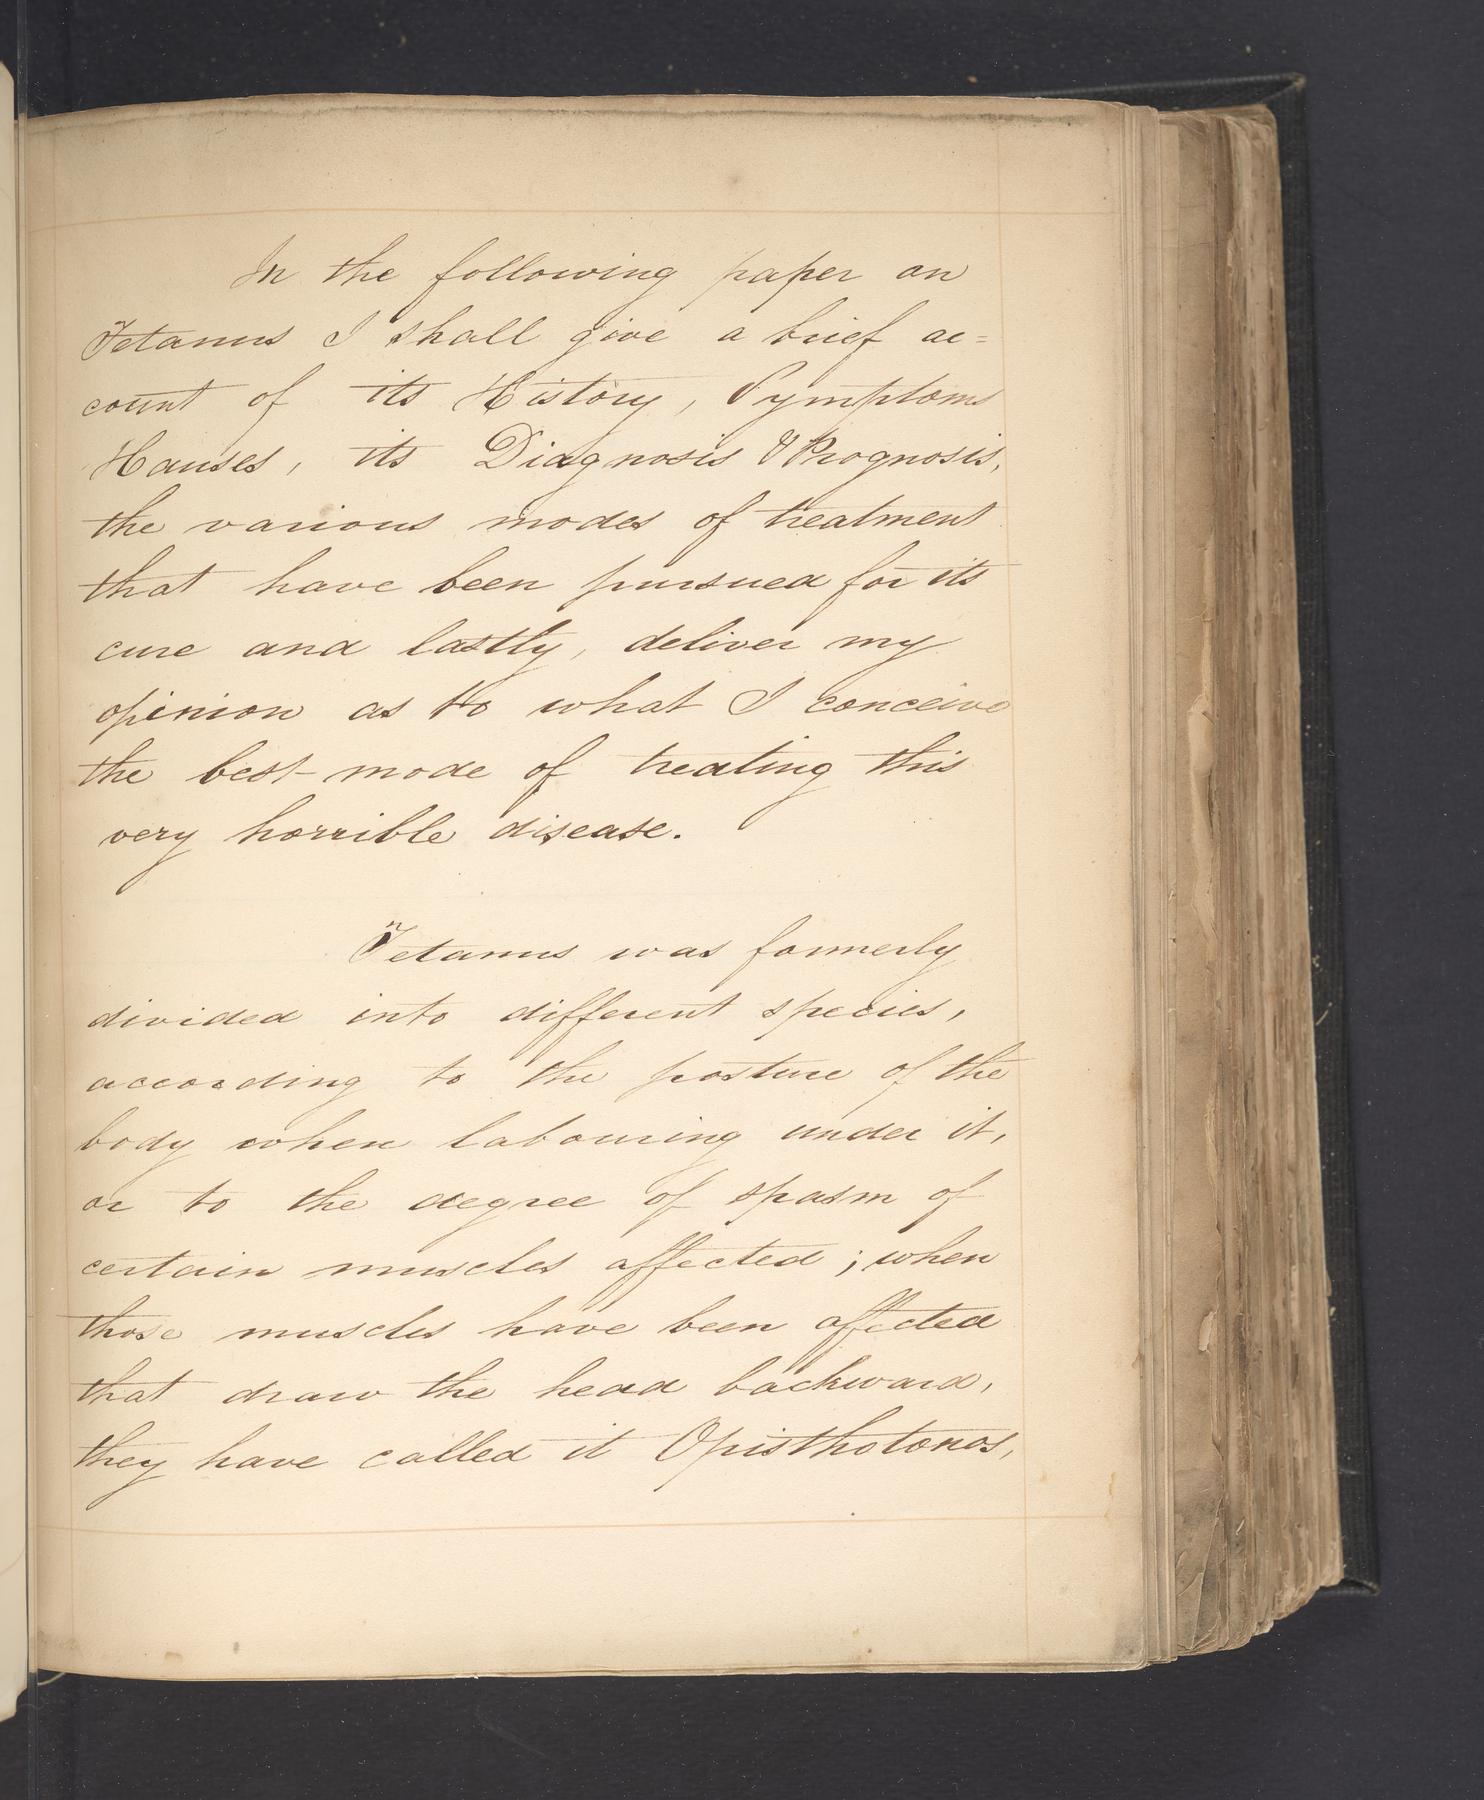 In the following paper on
Tetanus I shall give a brief ac=
count of its History, Symptoms
Causes, its Diagnosis & Prognosis,
the various modes of treatment
that have been pursued for its
cure and lastly, deliver my
opinion as to what I conceive
the best mode of treating this
very horrible disease.
Tetanus was formerly
divided into different species,
according to the posture of the
body when labouring under it,
or to the degree of spasm of
certain muscles affected; when
those muscles have been affected
that draw the head backward,
they have called it Opisthotonos,